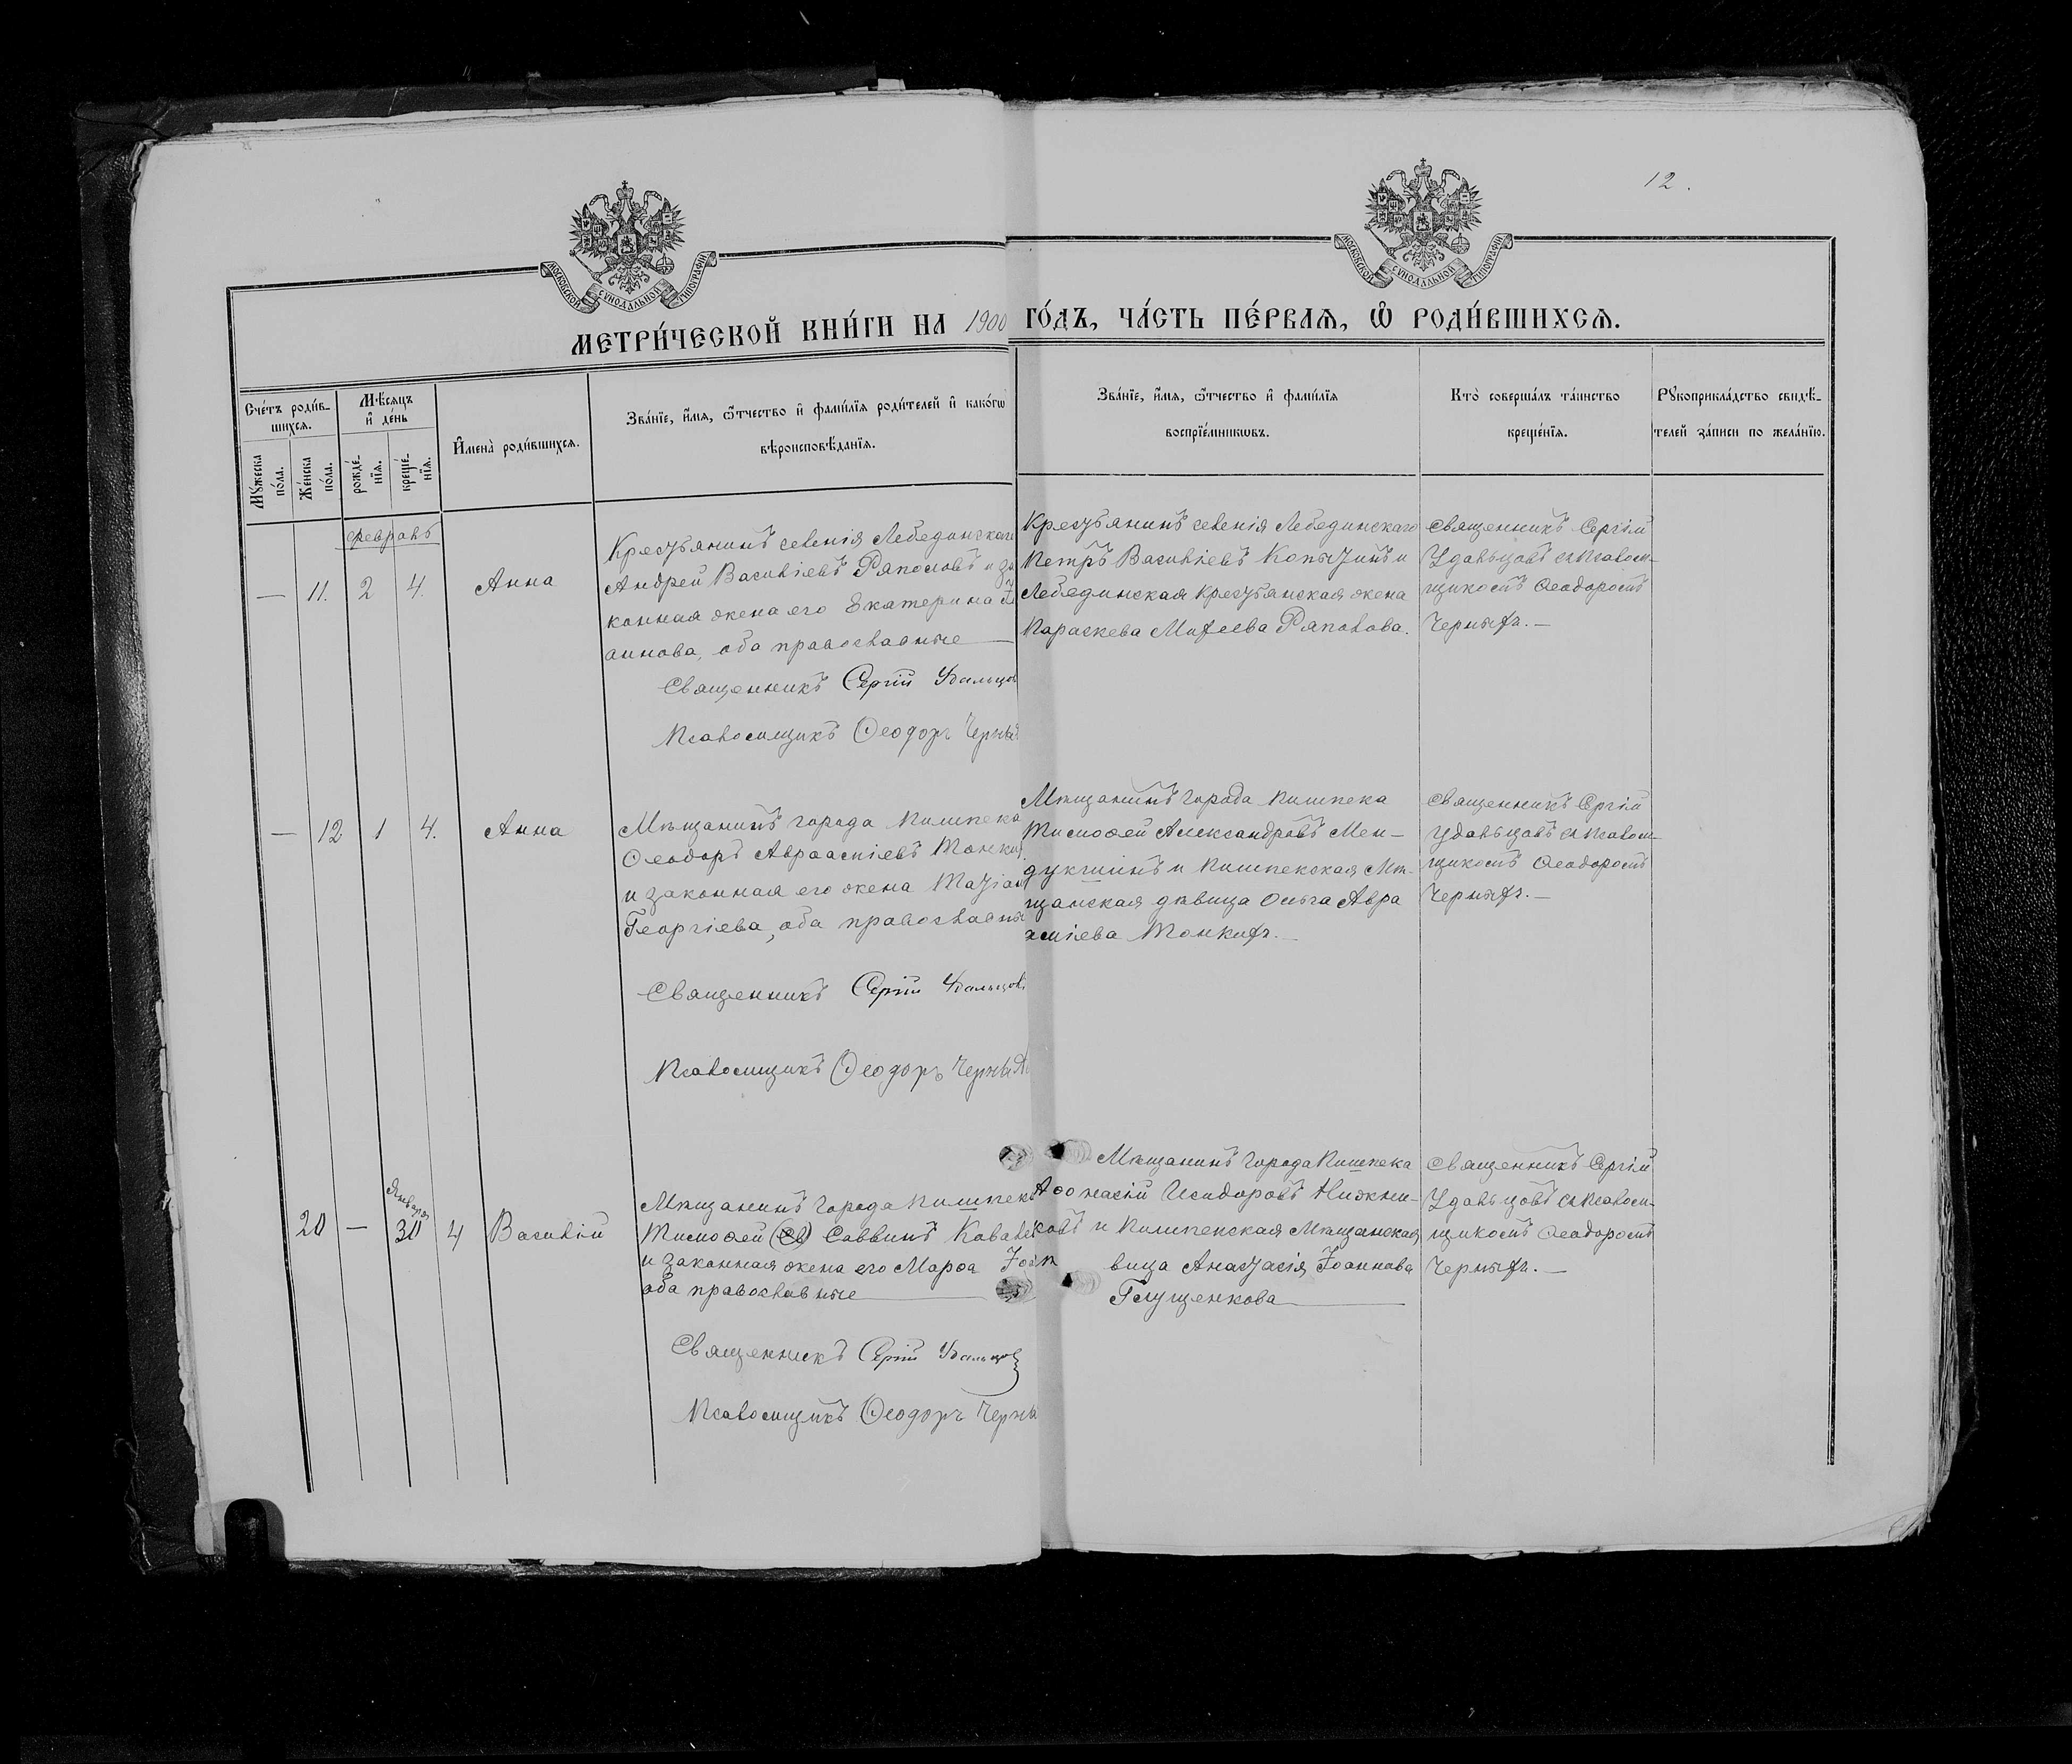 12.
МОСКОВСКОЙ СУНОДАЛЬНОЙ ТИПОГРАФІИ
МОСКОВСКОЙ СУНОДАЛЬНОЙ ТИПОГРАФІИ
МЕТРИ́ЧЕСКОЙ КНИ́ГИ НА 1900 ГО́ДЪ, ЧА́СТЬ ПЕ́РВАѦ, Ѡ҆ РОДИ́ВШИХСѦ.
Сче́тъ роди́в-
шихсѧ.
Мꙋ́жеска по́ла.
Же́нска по́ла.
Мѣ́сѧцъ
и҆ де́нь
рожде́-
нїѧ.
креще́-
нїѧ.
И҆мена̀ роди́вшихсѧ.
Зва́нїе, и҆́мѧ, ѻ҆́тчество и҆ фами́лїѧ роди́телей и҆ како́гѡ
вѣроисповѣ́данїѧ.
Зва́нїе, и҆́мѧ, ѻ҆́тчество и҆ фами́лїѧ
воспрїе́мникѡвъ.
Кто̀ соверша́лъ та́инство
креще́нїѧ.
Рꙋкоприкла́дство свидѣ́-
телей за́писи по жела́нїю.
февраль
— 11. 2 4. Анна
Крестьянинъ селенія Лебединскаго
Андрей Василіевъ Ряполовъ и за
конная жена его Екатерина І
аннова, оба православные
Священникъ Сергій Удальцов
Псаломщикъ Ѳеодоръ Черны
Крестьянинъ селенія Лебединскаго
Петръ Василіевъ Копытинъ и
Лебединская крестьянская жена
Параскева Матѳеева Ряполова.
Священникъ Сергій
Удальцовъ съ псалом-
щикомъ Ѳеодоромъ
Черныхъ. —
— 12 1 4. Анна
Мѣщанинъ города Пишпека
Ѳеодоръ Авраамiевъ Тонки
и законная его жена Татіан
Георгіева, оба православны
Священникъ Сергій Удальцовъ
Псаломщикъ Ѳеодоръ Черных
Мѣщанинъ города Пишпека
Тимоѳей Александровъ Мен-
и Пишпекская Мѣ-
щанская дѣвица Ольга Авра
аміева Тонкихъ. —
Священникъ Сергій
Удальцовъ съ псалом-
щикомъ Ѳеодоромъ
Черныхъ. —
20 — Января 30 4 Василій
Мѣщанинъ города Пишпек
Тимоѳей (Св) Саввинъ Ковале
и законная жена его Марѳа Іоан
оба православные
Священникъ Сергій Удальцов
Псаломщикъ Ѳеодоръ Черны
Мѣщанинъ города Пишпека
Аѳонасій Исидоровъ Нижни-
ковъ и Пишпекская Мѣщанская
вица Анастасія Іоаннова
Глущенкова
Священникъ Сергій
Удальцовъ съ псалом-
щикомъ Ѳеодоромъ
Черныхъ. —